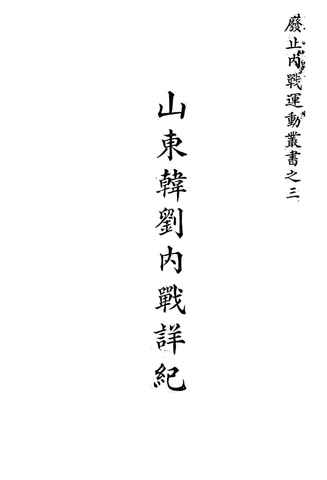 廢止內戰運動叢書之三
山東韓劉內戰詳紀